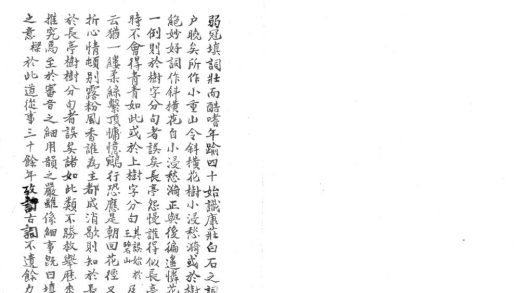 弱冠填詞壯而酷嗜年踰四十始識康莊白石之詞
户晓矣所作小重山令斜橫花樹小浸愁漪或於樹
絕妙好詞作斜橫花自小浸愁漪正與後徧遙憐花
一倒則於樹字分句者誤矣長亭怨慢誰得似長亭
時不會得青青如此或於上樹字分句其誤始於
云猶一縷柔絲繫頂慵憶鷗行恐應是朝回花徑又
折心情頓別露粉風香誰為主都成消歇則知於長
於長亭樹樹分句者誤矣諸如此類不勝枚舉歷來
推究焉至於審音之細用韻之嚴雖係細事既曰填
之意樑於此道從事三十餘年攷訂古詞不遺餘力